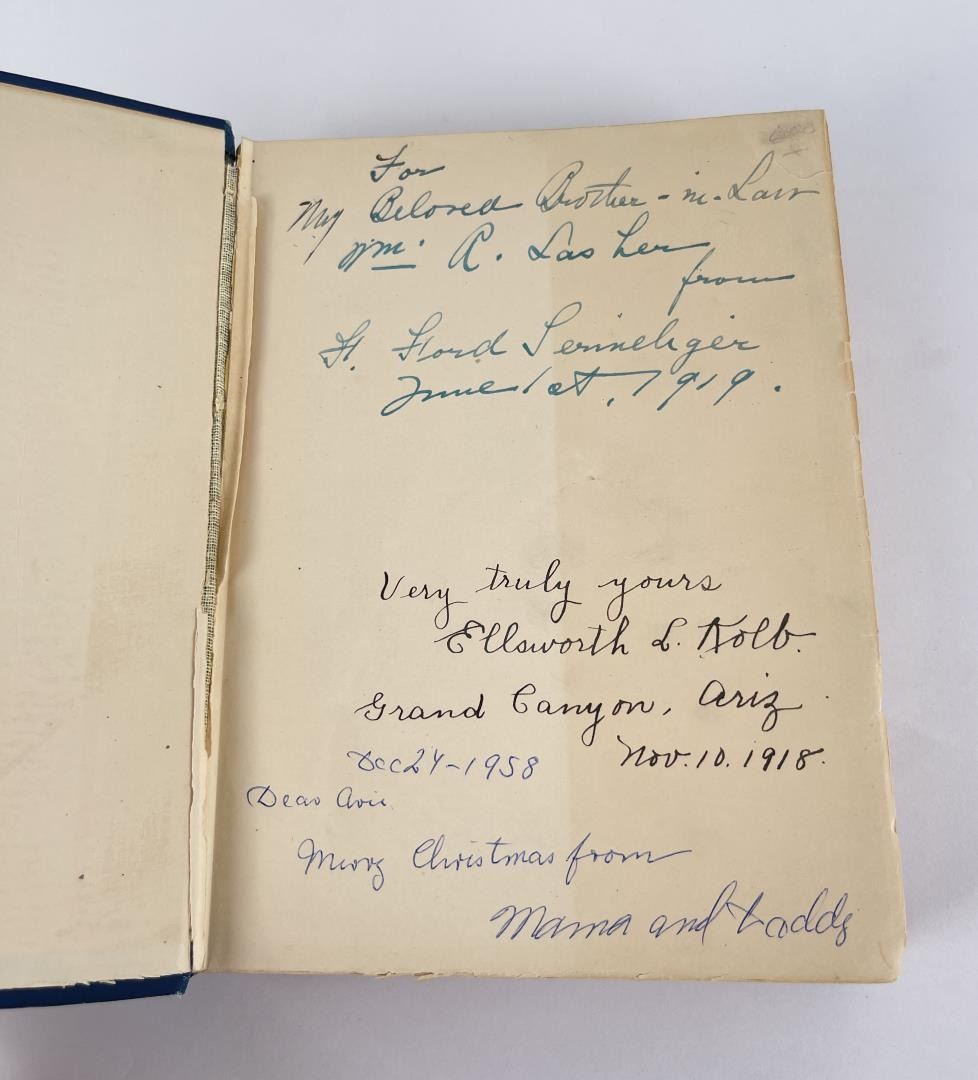 For
My Beloved Brother-in-Law
Wm. R. Lasher
from
Ford
June 1st, 1919.
Very truly yours
Ellsworth L. Kolb.
Grand Canyon, Ariz
Nov. 10. 1918.
Dec 24-1958
Dear
Merry Christmas from
Mama and Daddy